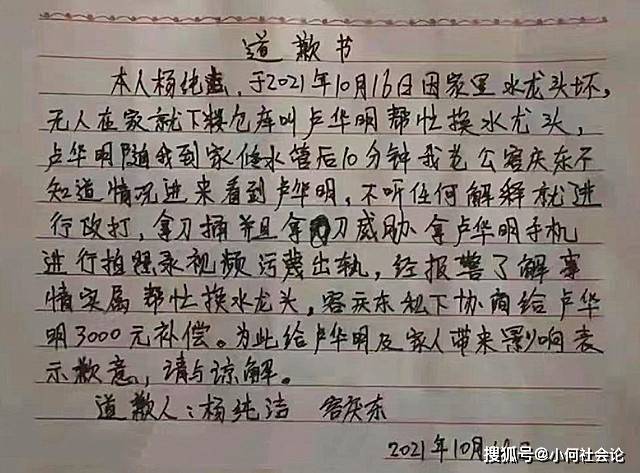 道歉书
本人杨纯洁,于2021年10月16日因家里水龙头坏,
无人在家就下楼仓库叫卢华明帮忙换水龙头,
卢华明随我到家修水管后10分钟我老公客庆东不
知道情况进来看到卢华明,不听任何解释就进
行攻打,拿刀捅并且拿刀威胁拿卢华明手机
进行拍照录视频污蔑出轨,经报警了解事
情实属帮忙换水龙头,客庆东私下协商给卢华
明3000元补偿。为此给卢华明及家人带来影响表
示歉意,请与谅解。
道歉人:杨纯洁 客庆东
2021年10月
搜狐号@小何社会论